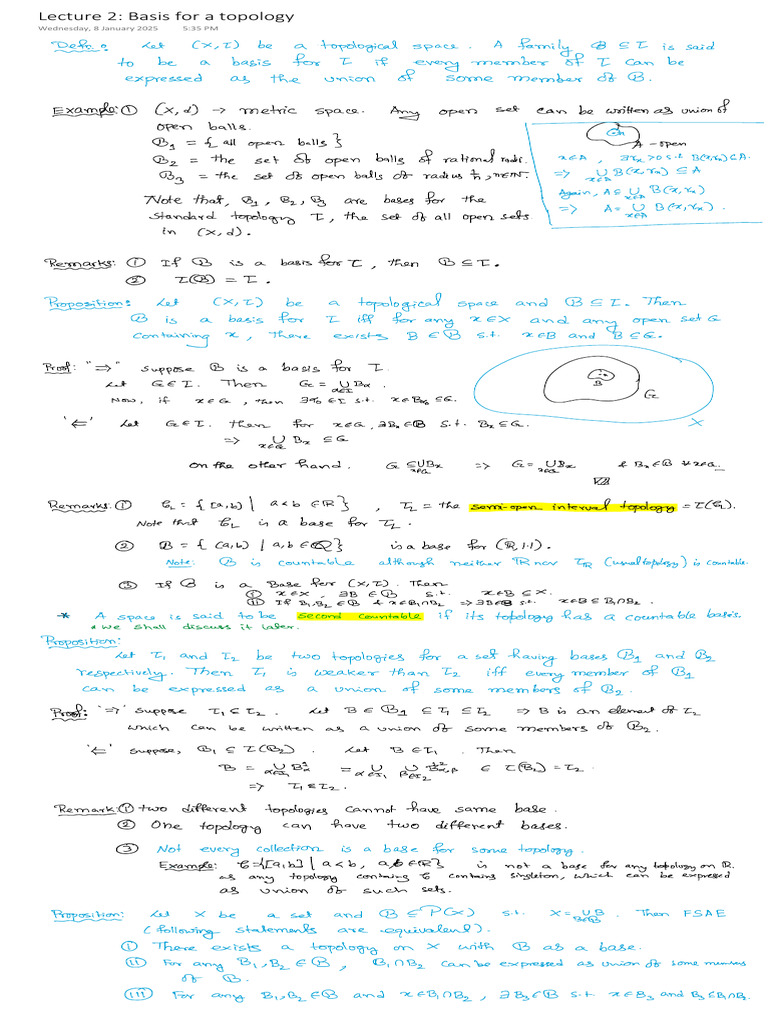 Lecture 2: Basis for a topology
Wednesday, 8 January 2025 5:35 PM
Defn: Let (X,τ) be a topological space. A family ℬ ⊆ τ is said
to be a basis for τ if every member of τ can be
expressed as the union of some member of ℬ.
Example: ① (X,d) → metric space. Any open set can be written as union of
open balls.
ℬ₁ = { all open balls }
ℬ₂ = the set of open balls of rational radii.
ℬ₃ = the set of open balls of radius 1/n, n∈ℕ.
Note that, ℬ₁, ℬ₂, ℬ₃ are bases for the
standard topology τ, the set of all open sets
in (X,d).
A - open
x∈A, ∃ rₓ>0 s.t B(x,rₓ) ⊆ A.
=> ∪_{x∈A} B(x,rₓ) ⊆ A
Again, A ⊆ ∪_{x∈A} B(x,rₓ)
=> A = ∪_{x∈A} B(x,rₓ).
Remarks: ① If ℬ is a basis for τ, then ℬ ⊆ τ.
② τ(ℬ) = τ.
Proposition: Let (X,τ) be a topological space and ℬ ⊆ τ. Then
ℬ is a basis for τ iff for any x∈X and any open set G
containing x, there exists B∈ℬ s.t. x∈B and B⊆G.
Proof: "=>" suppose ℬ is a basis for τ.
Let G∈τ. Then G = ∪_{α∈I} B_α.
Now, if x∈G, then ∃ α₀∈I s.t. x∈B_{α₀}⊆G.
B
G
X
'<=' Let G∈τ. then for x∈G, ∃ Bₓ∈ℬ s.t. Bₓ⊆G.
=> ∪_{x∈G} Bₓ ⊆ G
on the other hand. G ⊆ ∪_{x∈G} Bₓ => G = ∪_{x∈G} Bₓ & Bₓ∈ℬ ∀x∈G.
Remarks: ① 𝒞_L = { [a,b) | a<b ∈ℝ }, τ_L = the semi-open interval topology = τ(𝒞_L).
Note that 𝒞_L is a base for τ_L.
② ℬ = { (a,b) | a,b ∈ℚ } is a base for (ℝ,|·|).
Note: ℬ is countable although neither ℝ nor τ_ℝ (usual topology) is countable.
③ If ℬ is a Base for (X,τ). Then
① x∈X, ∃ B∈ℬ s.t. x∈B⊆X.
② If B₁,B₂∈ℬ & x∈B₁∩B₂ => ∃ B∈ℬ s.t. x∈B⊆B₁∩B₂.
* A space is said to be second countable if its topology has a countable basis.
* we shall discuss it later.
Proposition:
Let τ₁ and τ₂ be two topologies for a set having bases ℬ₁ and ℬ₂
respectively. Then τ₁ is weaker than τ₂ iff every member of ℬ₁
can be expressed as a union of some members of ℬ₂.
Proof: '=>' suppose τ₁⊆τ₂. Let B∈ℬ₁⊆τ₁⊆τ₂ => B is an element of τ₂
which can be written as a union of some members of ℬ₂.
'<=' suppose, ℬ₁⊆τ(ℬ₂). Let B∈τ₁. Then
B = ∪_{α∈I₁} B¹_α = ∪_{α∈I₁} ∪_{β∈I₂} B^{1,2}_{α,β} ∈ τ(ℬ₂) = τ₂.
=> τ₁⊆τ₂.
Remark: ① two different topologies cannot have same base.
② One topology can have two different bases.
③ Not every collection is a base for some topology.
Example: 𝒞={[a,b] | a<b, a,b∈ℝ} is not a base for any topology on ℝ.
as any topology containing 𝒞 contains singleton, which can be expressed
as union of such sets.
Proposition: Let X be a set and ℬ⊆𝒫(X) s.t. X = ∪_{B∈ℬ} B. Then FSAE
(following statements are equivalent).
Ⓘ There exists a topology on X with ℬ as a base.
Ⓘⓘ For any B₁,B₂∈ℬ, B₁∩B₂ can be expressed as union of some members
of ℬ.
Ⓘⓘⓘ For any B₁,B₂∈ℬ and x∈B₁∩B₂, ∃ B₃∈ℬ s.t x∈B₃ and B₃⊆B₁∩B₂.